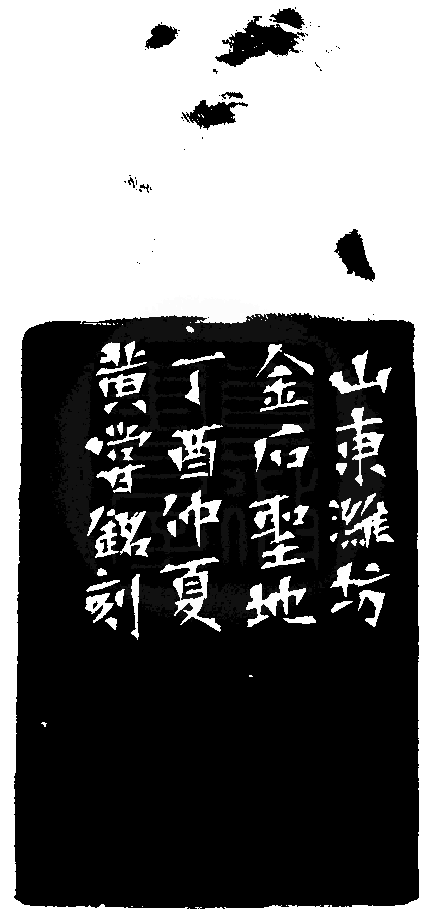 山東濰坊
金石聖地
丁酉仲夏
黄嘗銘刻